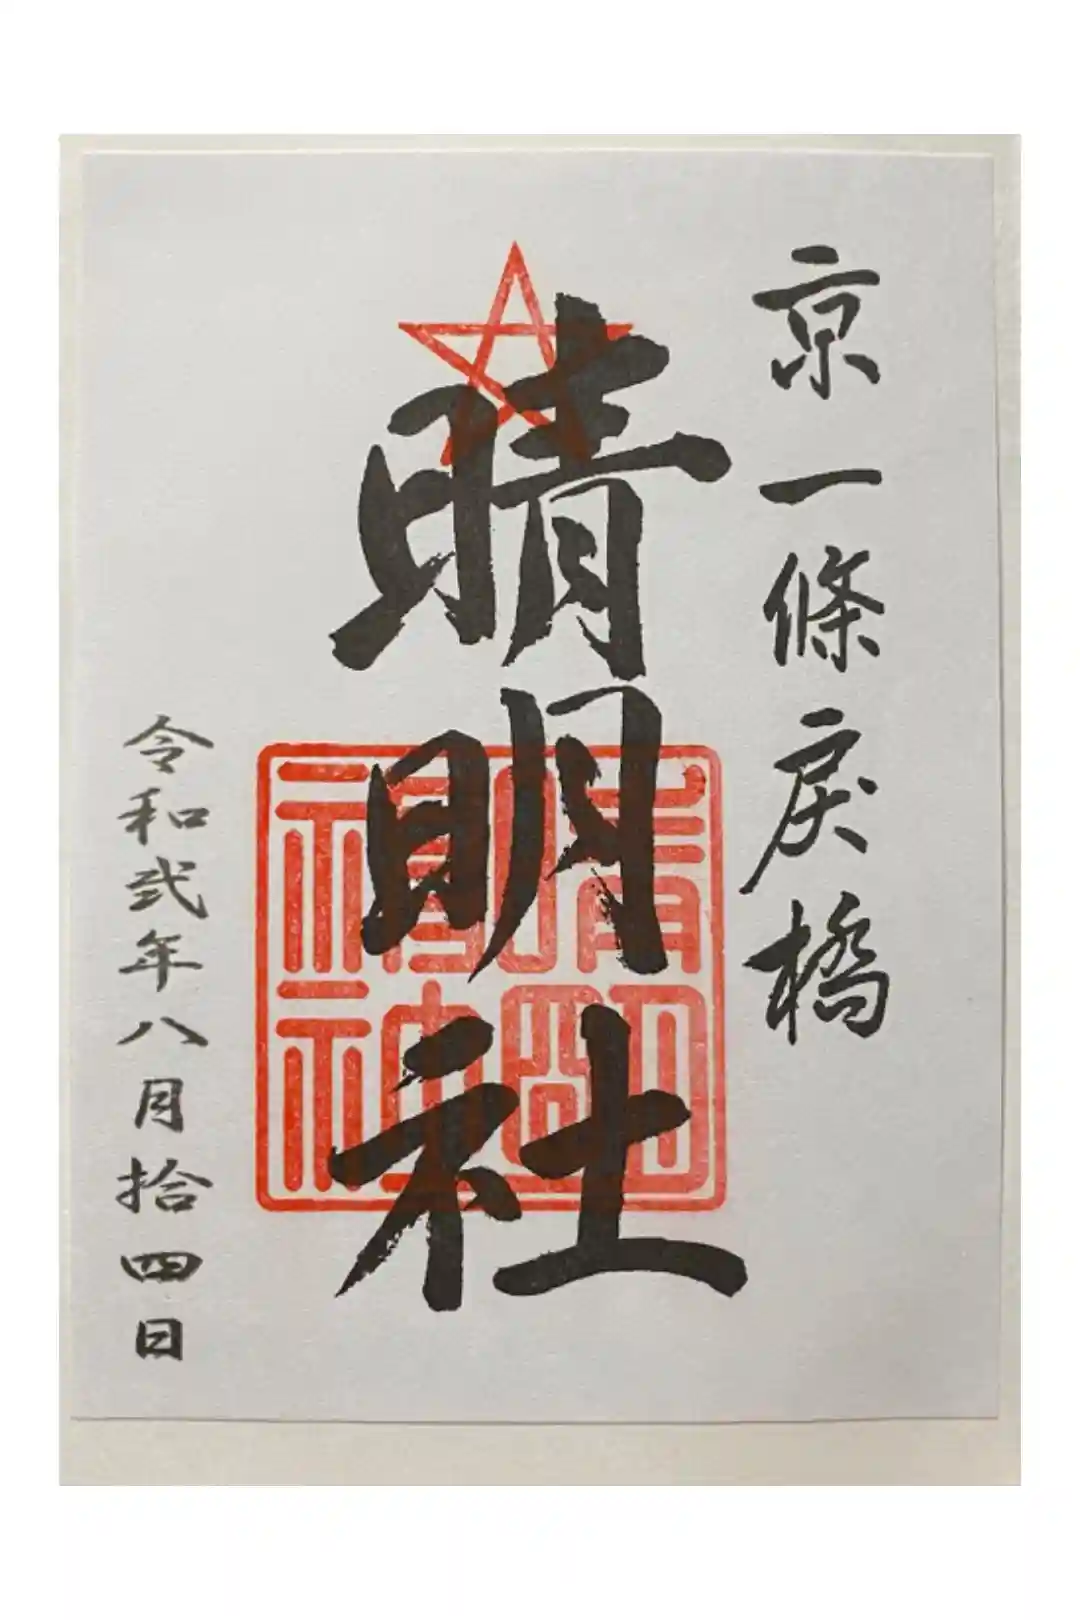 京一條戻橋
晴明社
晴明
神社
令和弐年八月拾四日